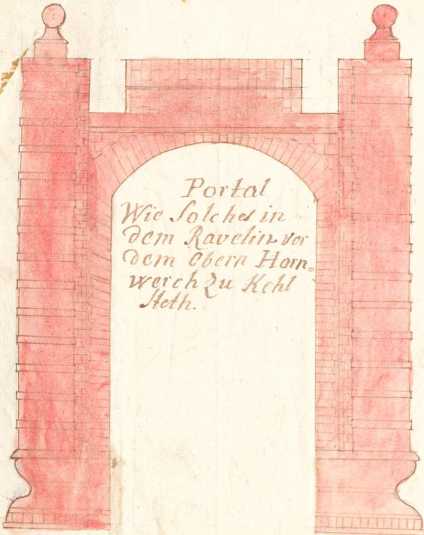 Portal
Wie Solches in
dem Ravelin vor
dem Obern Horn-
werch Zu Kehl
Steth.